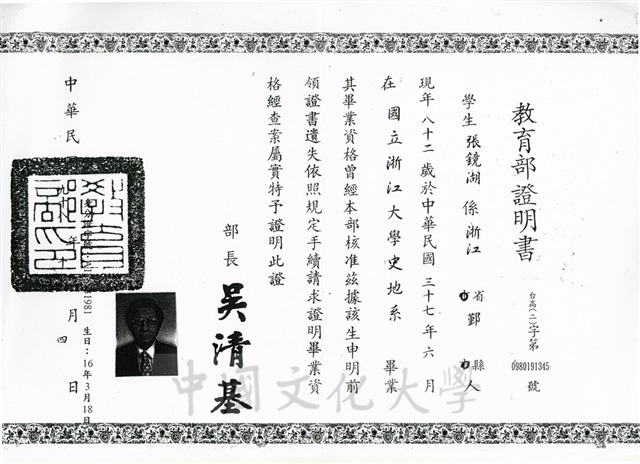 教育部證明書
台高(二)字第0980191345號
學生張鏡湖係浙江省鄞縣人
現年八十二歲於中華民國三十七年六月
在國立浙江大學史地系畢業
其畢業資格曾經本部核准茲據該生申明前
領證書遺失依照規定手續請求證明畢業資
格經查案屬實特予證明此證
部長 吳清基
生日：16年3月18日
中華民 年 月四日
中國文化大學